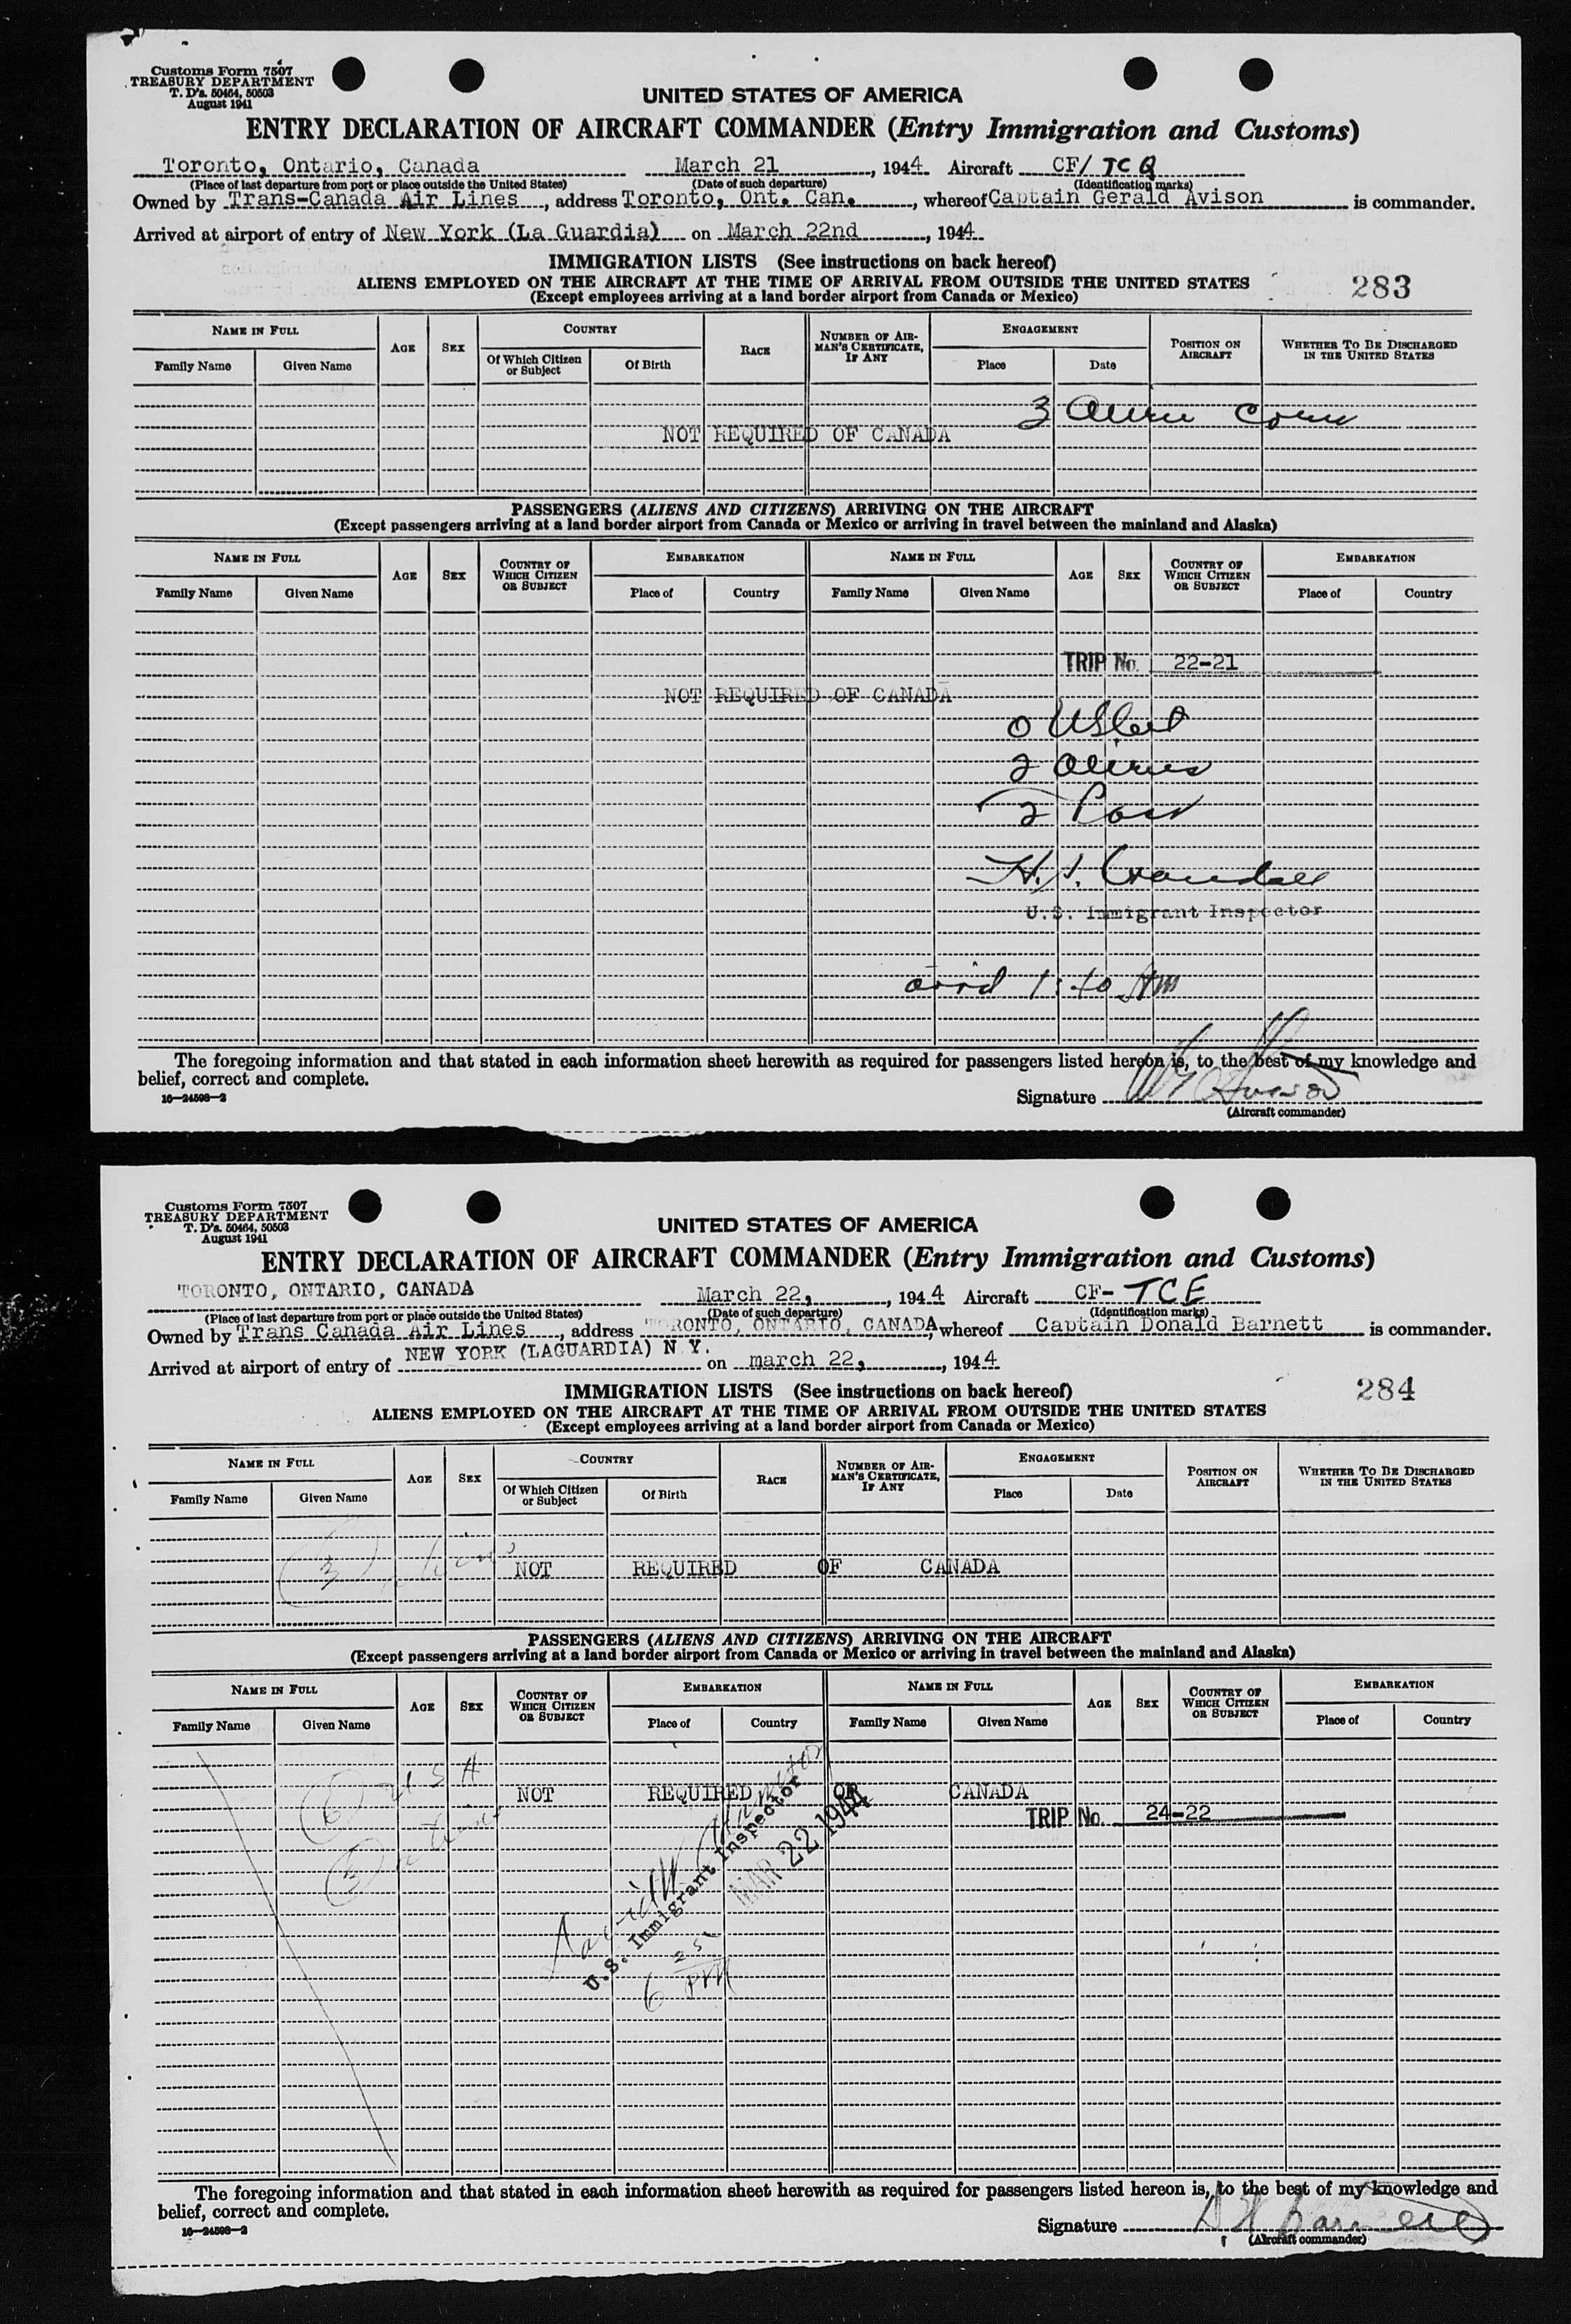 Customs Form 7507
TREASURY DEPARTMENT
T. D's. 50464, 50503
August 1941
UNITED STATES OF AMERICA
ENTRY DECLARATION OF AIRCRAFT COMMANDER (Entry Immigration and Customs)
Toronto, Ontario, Canada March 21, 1944 Aircraft CF/TCQ
(Place of last departure from port or place outside the United States) (Date of such departure) (Identification marks)
Owned by Trans-Canada Air Lines, address Toronto, Ont. Can., whereof Captain Gerald Avison is commander.
Arrived at airport of entry of New York (La Guardia) on March 22nd, 1944
IMMIGRATION LISTS (See instructions on back hereof)
ALIENS EMPLOYED ON THE AIRCRAFT AT THE TIME OF ARRIVAL FROM OUTSIDE THE UNITED STATES
283
(Except employees arriving at a land border airport from Canada or Mexico)
NAME IN FULL AGE SEX COUNTRY RACE NUMBER OF AIRMAN'S CERTIFICATE, IF ANY ENGAGEMENT POSITION ON AIRCRAFT WHETHER TO BE DISCHARGED IN THE UNITED STATES
Family Name Given Name Of Which Citizen or Subject Of Birth Place Date
3 Alien
NOT REQUIRED OF CANADA
PASSENGERS (ALIENS AND CITIZENS) ARRIVING ON THE AIRCRAFT
(Except passengers arriving at a land border airport from Canada or Mexico or arriving in travel between the mainland and Alaska)
NAME IN FULL AGE SEX COUNTRY OF WHICH CITIZEN OR SUBJECT EMBARKATION NAME IN FULL AGE SEX COUNTRY OF WHICH CITIZEN OR SUBJECT EMBARKATION
Family Name Given Name Place of Country Family Name Given Name Place of Country
TRIP No. 22-21
NOT REQUIRED OF CANADA
0 US
2 Aliens
2 Pass
H. Crandall
U.S. Immigrant Inspector
arrd 1:40 AM
The foregoing information and that stated in each information sheet herewith as required for passengers listed hereon is, to the best of my knowledge and
belief, correct and complete.
16—24598—2
Signature Avison
(Aircraft commander)
Customs Form 7507
TREASURY DEPARTMENT
T. D's. 50464, 50503
August 1941
UNITED STATES OF AMERICA
ENTRY DECLARATION OF AIRCRAFT COMMANDER (Entry Immigration and Customs)
TORONTO, ONTARIO, CANADA March 22, 1944 Aircraft CF-TCE
(Place of last departure from port or place outside the United States) (Date of such departure) (Identification marks)
Owned by Trans Canada Air Lines, address TORONTO, ONTARIO, CANADA, whereof Captain Donald Barnett is commander.
Arrived at airport of entry of NEW YORK (LAGUARDIA) N Y. on march 22, 1944
IMMIGRATION LISTS (See instructions on back hereof)
284
ALIENS EMPLOYED ON THE AIRCRAFT AT THE TIME OF ARRIVAL FROM OUTSIDE THE UNITED STATES
(Except employees arriving at a land border airport from Canada or Mexico)
NAME IN FULL AGE SEX COUNTRY RACE NUMBER OF AIRMAN'S CERTIFICATE, IF ANY ENGAGEMENT POSITION ON AIRCRAFT WHETHER TO BE DISCHARGED IN THE UNITED STATES
Family Name Given Name Of Which Citizen or Subject Of Birth Place Date
3 aliens NOT REQUIRED OF CANADA
PASSENGERS (ALIENS AND CITIZENS) ARRIVING ON THE AIRCRAFT
(Except passengers arriving at a land border airport from Canada or Mexico or arriving in travel between the mainland and Alaska)
NAME IN FULL AGE SEX COUNTRY OF WHICH CITIZEN OR SUBJECT EMBARKATION NAME IN FULL AGE SEX COUNTRY OF WHICH CITIZEN OR SUBJECT EMBARKATION
Family Name Given Name Place of Country Family Name Given Name Place of Country
6 USA
NOT REQUIRED OF CANADA
TRIP No. 24-22
3 aliens
U.S. Immigrant Inspector
MAR 22 1944
6 25 PM
The foregoing information and that stated in each information sheet herewith as required for passengers listed hereon is, to the best of my knowledge and
belief, correct and complete.
16—24598—2
Signature D Barnett
(Aircraft commander)